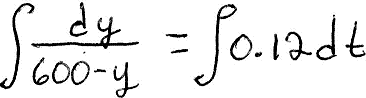 ∫ dy/(600-y) = ∫ 0.12 dt